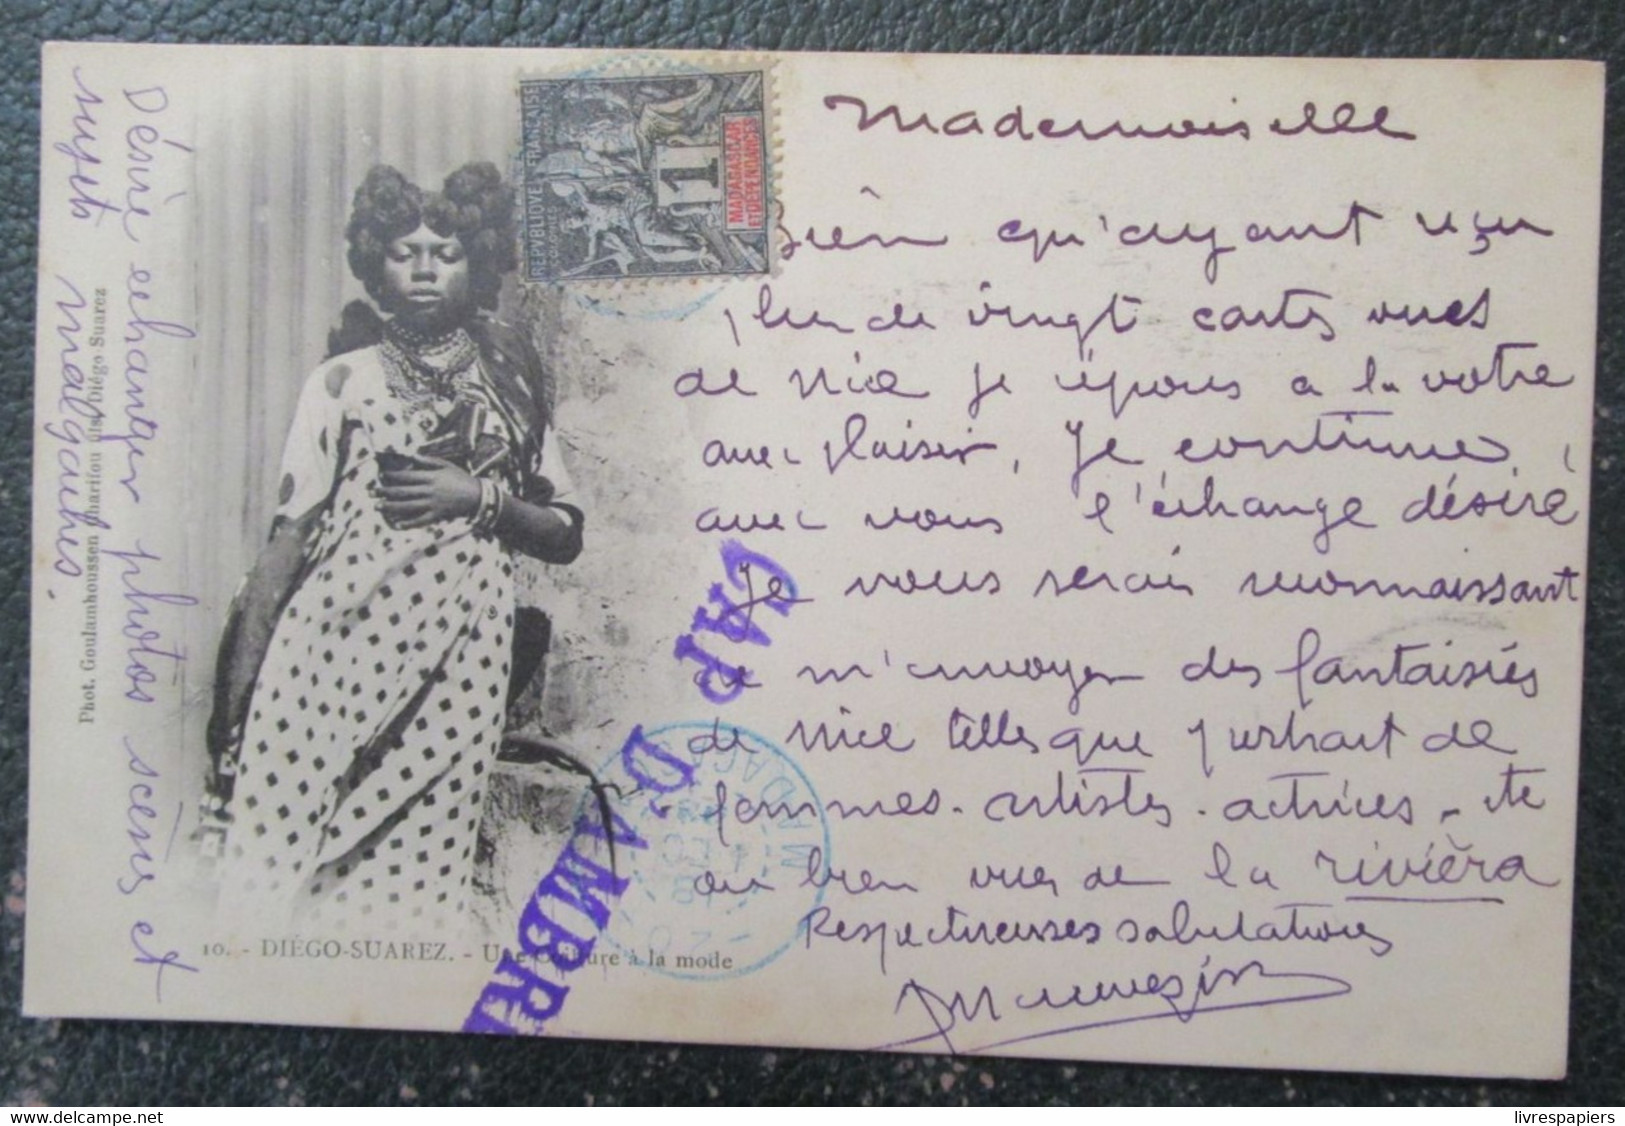 Mademoiselle
Bien qu'ayant reçu
plus de vingt cartes vues
de Nice je répons a la votre
avec plaisir, je continue
avec vous l'échange désiré
Je vous serais reconnaissant
de m'envoyer des fantaisies
de Nice telles que portrait de
femmes - artistes - actrices - etc
ou bien vues de la rivièra
Respectueuses salutations
Désire echanger photos scènes et
sujets malgaches.
Phot. Goulamhoussen Charifou Diégo Suarez
10. - DIÉGO-SUAREZ. - Une Coiffure à la mode
REPVBLIQVE FRANÇAISE
COLONIES
1
MADAGASCAR
ET DÉPENDANCES
CAP
D'AMBRE
Delcampe.net
livrespapiers